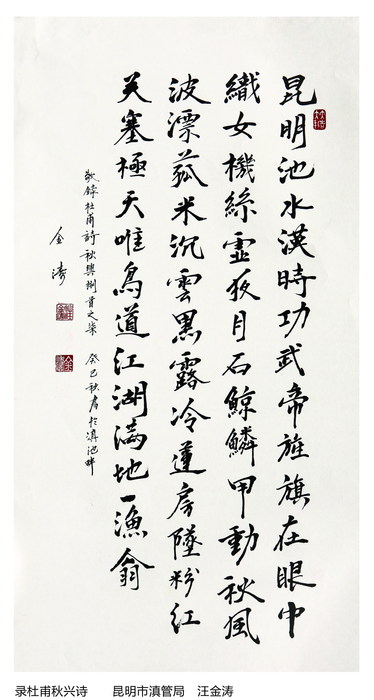 昆明池水漢時功武帝旌旗在眼中
織女機絲虛夜月石鯨鱗甲動秋風
波漂菰米沉雲黑露冷蓮房墜粉紅
关塞極天唯鳥道江湖滿地一漁翁
敬錄杜甫詩秋興捌首之柒 癸巳秋書於滇池畔
金濤
录杜甫秋兴诗 昆明市滇管局 汪金涛